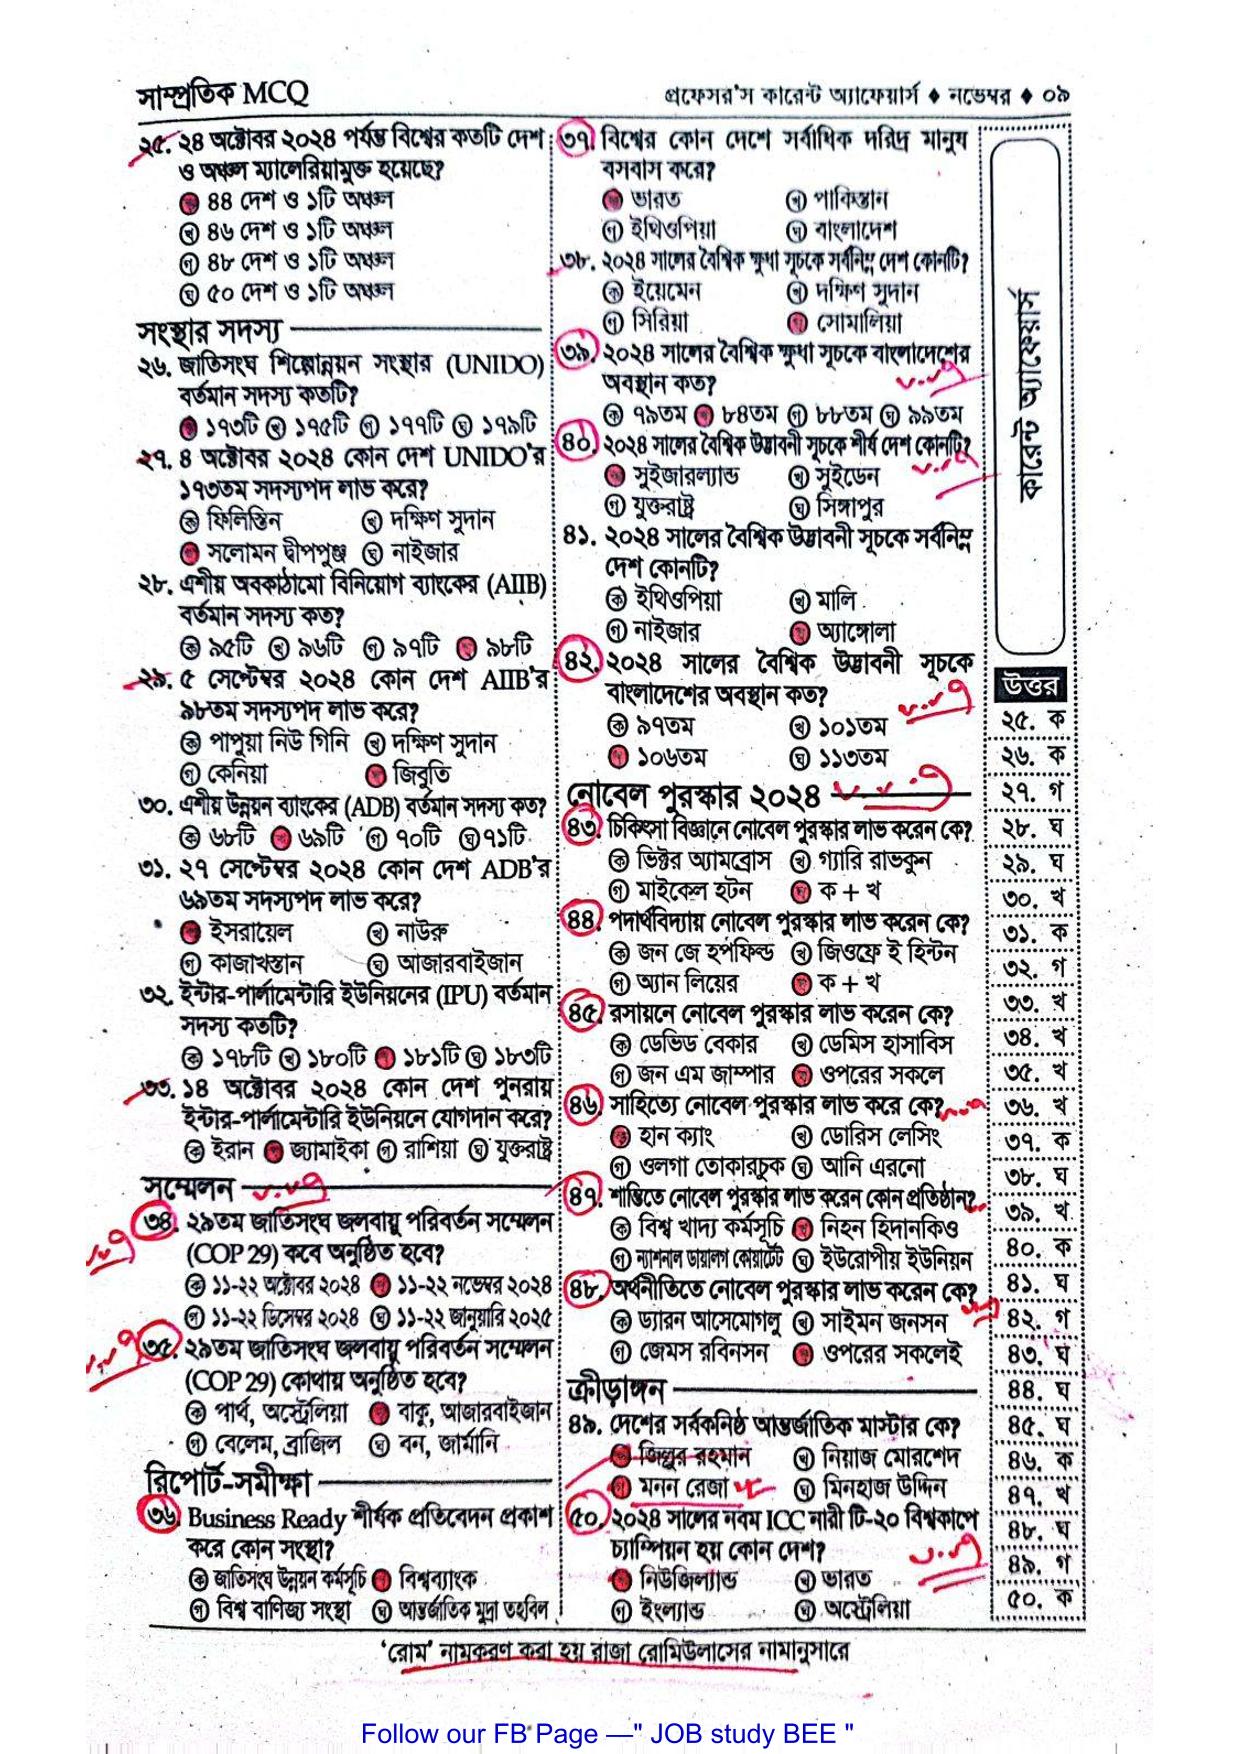 সাম্প্রতিক MCQ
প্রফেসর'স কারেন্ট অ্যাফেয়ার্স ♦ নভেম্বর ♦ ০৯
২৫. ২৪ অক্টোবর ২০২৪ পর্যন্ত বিশ্বের কতটি দেশ
ও অঞ্চল ম্যালেরিয়ামুক্ত হয়েছে?
৪৪ দেশ ও ১টি অঞ্চল
খ ৪৬ দেশ ও ১টি অঞ্চল
গ ৪৮ দেশ ও ১টি অঞ্চল
ঘ ৫০ দেশ ও ১টি অঞ্চল
সংস্থার সদস্য
২৬. জাতিসংঘ শিল্পোন্নয়ন সংস্থার (UNIDO)
বর্তমান সদস্য কতটি?
১৭৩টি খ ১৭৫টি গ ১৭৭টি ঘ ১৭৯টি
২৭. ৪ অক্টোবর ২০২৪ কোন দেশ UNIDO'র
১৭৩তম সদস্যপদ লাভ করে?
ক ফিলিস্তিন খ দক্ষিণ সুদান
সলোমন দ্বীপপুঞ্জ ঘ নাইজার
২৮. এশীয় অবকাঠামো বিনিয়োগ ব্যাংকের (AIIB)
বর্তমান সদস্য কত?
ক ৯৫টি খ ৯৬টি গ ৯৭টি ৯৮টি
২৯. ৫ সেপ্টেম্বর ২০২৪ কোন দেশ AIIB'র
৯৮তম সদস্যপদ লাভ করে?
ক পাপুয়া নিউ গিনি খ দক্ষিণ সুদান
গ কেনিয়া জিবুতি
৩০. এশীয় উন্নয়ন ব্যাংকের (ADB) বর্তমান সদস্য কত?
ক ৬৮টি ৬৯টি গ ৭০টি ঘ ৭১টি
৩১. ২৭ সেপ্টেম্বর ২০২৪ কোন দেশ ADB'র
৬৯তম সদস্যপদ লাভ করে?
ইসরায়েল খ নাউরু
গ কাজাখস্তান ঘ আজারবাইজান
৩২. ইন্টার-পার্লামেন্টারি ইউনিয়নের (IPU) বর্তমান
সদস্য কতটি?
ক ১৭৮টি খ ১৮০টি ১৮১টি ঘ ১৮৩টি
৩৩. ১৪ অক্টোবর ২০২৪ কোন দেশ পুনরায়
ইন্টার-পার্লামেন্টারি ইউনিয়নে যোগদান করে?
ক ইরান জ্যামাইকা গ রাশিয়া ঘ যুক্তরাষ্ট্র
সম্মেলন
৩৪. ২৯তম জাতিসংঘ জলবায়ু পরিবর্তন সম্মেলন
(COP 29) কবে অনুষ্ঠিত হবে?
ক ১১-২২ অক্টোবর ২০২৪ ১১-২২ নভেম্বর ২০২৪
গ ১১-২২ ডিসেম্বর ২০২৪ ঘ ১১-২২ জানুয়ারি ২০২৫
৩৫. ২৯তম জাতিসংঘ জলবায়ু পরিবর্তন সম্মেলন
(COP 29) কোথায় অনুষ্ঠিত হবে?
ক পার্থ, অস্ট্রেলিয়া বাকু, আজারবাইজান
গ বেলেম, ব্রাজিল ঘ বন, জার্মানি
রিপোর্ট-সমীক্ষা
৩৬. Business Ready শীর্ষক প্রতিবেদন প্রকাশ
করে কোন সংস্থা?
ক জাতিসংঘ উন্নয়ন কর্মসূচি বিশ্বব্যাংক
গ বিশ্ব বাণিজ্য সংস্থা ঘ আন্তর্জাতিক মুদ্রা তহবিল
৩৭. বিশ্বের কোন দেশে সর্বাধিক দরিদ্র মানুষ
বসবাস করে?
ভারত খ পাকিস্তান
গ ইথিওপিয়া ঘ বাংলাদেশ
৩৮. ২০২৪ সালের বৈশ্বিক ক্ষুধা সূচকে সর্বনিম্ন দেশ কোনটি?
ক ইয়েমেন খ দক্ষিণ সুদান
গ সিরিয়া সোমালিয়া
৩৯. ২০২৪ সালের বৈশ্বিক ক্ষুধা সূচকে বাংলাদেশের
অবস্থান কত?
ক ৭৯তম ৮৪তম গ ৮৮তম ঘ ৯৯তম
৪০. ২০২৪ সালের বৈশ্বিক উদ্ভাবনী সূচকে শীর্ষ দেশ কোনটি?
সুইজারল্যান্ড খ সুইডেন
গ যুক্তরাষ্ট্র ঘ সিঙ্গাপুর
৪১. ২০২৪ সালের বৈশ্বিক উদ্ভাবনী সূচকে সর্বনিম্ন
দেশ কোনটি?
ক ইথিওপিয়া খ মালি
গ নাইজার অ্যাঙ্গোলা
৪২. ২০২৪ সালের বৈশ্বিক উদ্ভাবনী সূচকে
বাংলাদেশের অবস্থান কত?
ক ৯৭তম খ ১০১তম
১০৬তম ঘ ১১৩তম
নোবেল পুরস্কার ২০২৪
৪৩. চিকিৎসা বিজ্ঞানে নোবেল পুরস্কার লাভ করেন কে?
ক ভিক্টর অ্যামব্রোস খ গ্যারি রাভকুন
গ মাইকেল হটন ক + খ
৪৪. পদার্থবিদ্যায় নোবেল পুরস্কার লাভ করেন কে?
ক জন জে হপফিল্ড খ জিওফ্রে ই হিন্টন
গ অ্যান লিয়ের ক + খ
৪৫. রসায়নে নোবেল পুরস্কার লাভ করেন কে?
ক ডেভিড বেকার খ ডেমিস হাসাবিস
গ জন এম জাম্পার ওপরের সকলে
৪৬. সাহিত্যে নোবেল পুরস্কার লাভ করে কে?
হান ক্যাং খ ডোরিস লেসিং
গ ওলগা তোকারচুক ঘ আনি এরনো
৪৭. শান্তিতে নোবেল পুরস্কার লাভ করেন কোন প্রতিষ্ঠান?
ক বিশ্ব খাদ্য কর্মসূচি নিহন হিদানকিও
গ ন্যাশনাল ডায়ালগ কোয়ার্টেট ঘ ইউরোপীয় ইউনিয়ন
৪৮. অর্থনীতিতে নোবেল পুরস্কার লাভ করেন কে?
ক ড্যারন আসেমোগলু খ সাইমন জনসন
গ জেমস রবিনসন ওপরের সকলেই
ক্রীড়াঙ্গন
৪৯. দেশের সর্বকনিষ্ঠ আন্তর্জাতিক মাস্টার কে?
জিল্লুর রহমান খ নিয়াজ মোরশেদ
মনন রেজা ঘ মিনহাজ উদ্দিন
৫০. ২০২৪ সালের নবম ICC নারী টি-২০ বিশ্বকাপে
চ্যাম্পিয়ন হয় কোন দেশ?
নিউজিল্যান্ড খ ভারত
গ ইংল্যান্ড ঘ অস্ট্রেলিয়া
কারেন্ট অ্যাফেয়ার্স
উত্তর
২৫. ক
২৬. ক
২৭. গ
২৮. ঘ
২৯. ঘ
৩০. খ
৩১. ক
৩২. গ
৩৩. খ
৩৪. খ
৩৫. খ
৩৬. খ
৩৭. ক
৩৮. ঘ
৩৯. খ
৪০. ক
৪১. ঘ
৪২. গ
৪৩. ঘ
৪৪. ঘ
৪৫. ঘ
৪৬. ক
৪৭. খ
৪৮. ঘ
৪৯. গ
৫০. ক
'রোম' নামকরণ করা হয় রাজা রোমিউলাসের নামানুসারে
Follow our FB Page —" JOB study BEE "